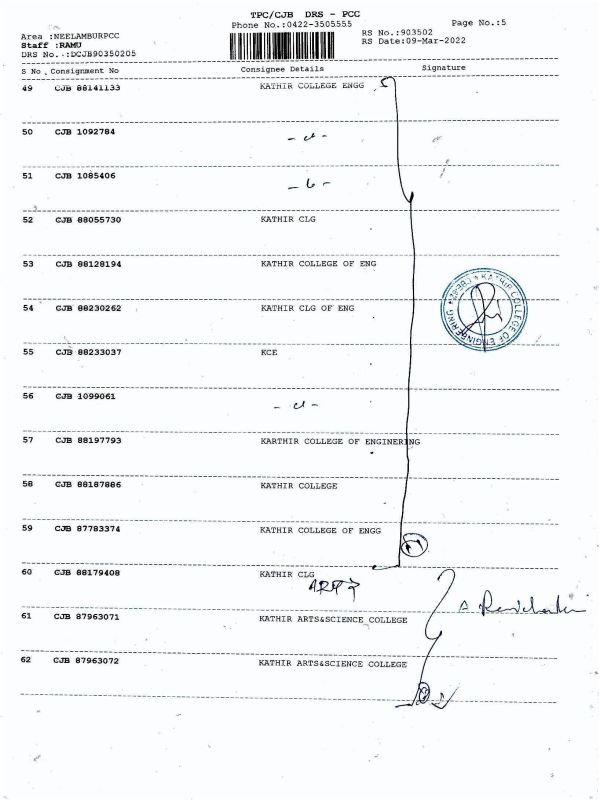 TPC/CJB DRS - PCC
Phone No.:0422-3505555
Page No.:5
Area :NEELAMBURPCC
RS No.:903502
Staff :RAMU
RS Date:09-Mar-2022
DRS No..:DCJB90350205
S No. Consignment No Consignee Details Signature
49 CJB 88141133 KATHIR COLLEGE ENGG
50 CJB 1092784
51 CJB 1085406
52 CJB 88055730 KATHIR CLG
53 CJB 88128194 KATHIR COLLEGE OF ENG
54 CJB 88230262 KATHIR CLG OF ENG
KATHIR COLLEGE OF ENGINEERING
55 CJB 88233037 KCE
56 CJB 1099061
57 CJB 88197793 KARTHIR COLLEGE OF ENGINERING
58 CJB 88187886 KATHIR COLLEGE
59 CJB 87783374 KATHIR COLLEGE OF ENGG
60 CJB 88179408 KATHIR CLG
61 CJB 87963071 KATHIR ARTS&SCIENCE COLLEGE
62 CJB 87963072 KATHIR ARTS&SCIENCE COLLEGE